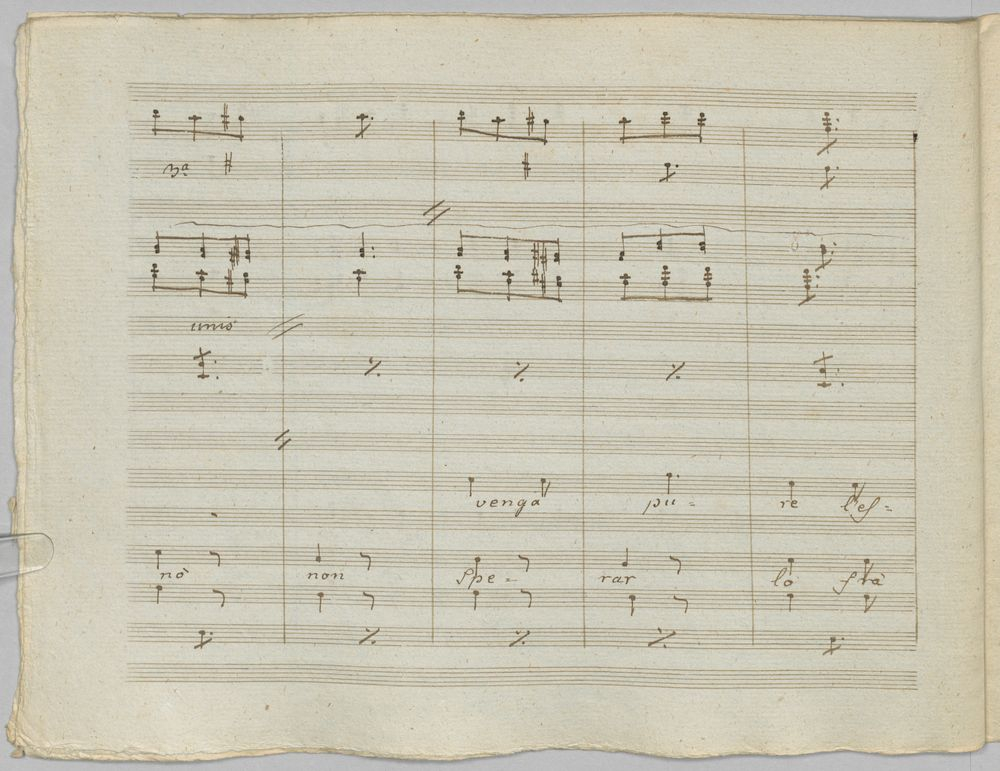 3ª
unis
venga pu = re l'es =
nò non spe = rar lo stà